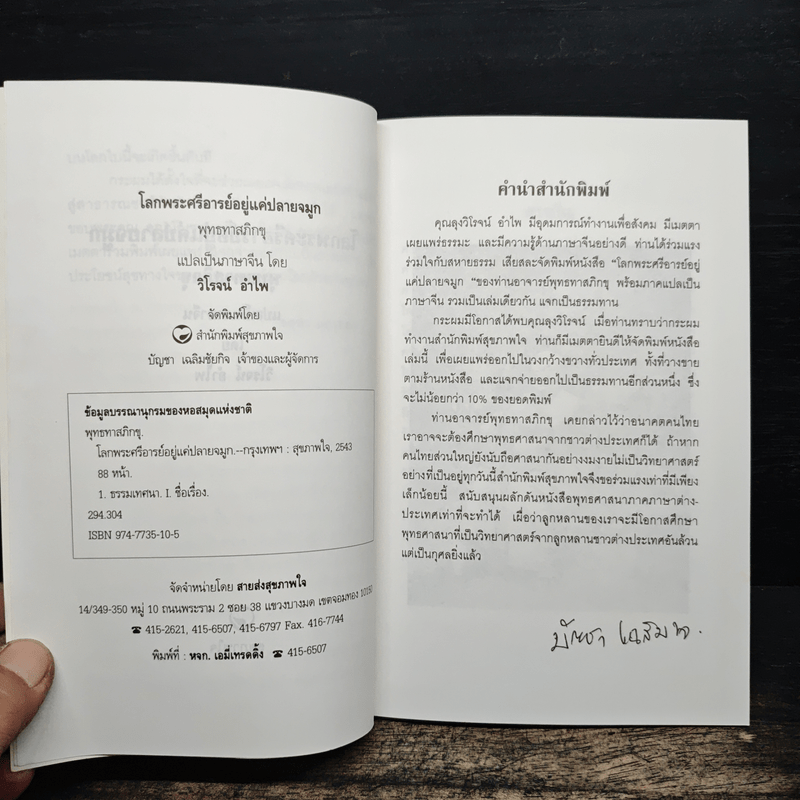 โลกพระศรีอารย์อยู่แค่ปลายจมูก
พุทธทาสภิกขุ
แปลเป็นภาษาจีน โดย
วิโรจน์ อำไพ
จัดพิมพ์โดย
สำนักพิมพ์สุขภาพใจ
บัญชา เฉลิมชัยกิจ เจ้าของและผู้จัดการ
ข้อมูลบรรณานุกรมของหอสมุดแห่งชาติ
พุทธทาสภิกขุ.
โลกพระศรีอารย์อยู่แค่ปลายจมูก.--กรุงเทพฯ : สุขภาพใจ, 2543
88 หน้า.
1. ธรรมเทศนา. I. ชื่อเรื่อง.
294.304
ISBN 974-7735-10-5
จัดจำหน่ายโดย สายส่งสุขภาพใจ
14/349-350 หมู่ 10 ถนนพระราม 2 ซอย 38 แขวงบางมด เขตจอมทอง 10150
☎ 415-2621, 415-6507, 415-6797 Fax. 416-7744
พิมพ์ที่ : หจก. เอมี่เทรดดิ้ง ☎ 415-6507
คำนำสำนักพิมพ์
คุณลุงวิโรจน์ อำไพ มีอุดมการณ์ทำงานเพื่อสังคม มีเมตตา
เผยแพร่ธรรมะ และมีความรู้ด้านภาษาจีนอย่างดี ท่านได้ร่วมแรง
ร่วมใจกับสหายธรรม เสียสละจัดพิมพ์หนังสือ "โลกพระศรีอารย์อยู่
แค่ปลายจมูก "ของท่านอาจารย์พุทธทาสภิกขุ พร้อมภาคแปลเป็น
ภาษาจีน รวมเป็นเล่มเดียวกัน แจกเป็นธรรมทาน
กระผมมีโอกาสได้พบคุณลุงวิโรจน์ เมื่อท่านทราบว่ากระผม
ทำงานสำนักพิมพ์สุขภาพใจ ท่านก็มีเมตตายินดีให้จัดพิมพ์หนังสือ
เล่มนี้ เพื่อเผยแพร่ออกไปในวงกว้างขวางทั่วประเทศ ทั้งที่วางขาย
ตามร้านหนังสือ และแจกจ่ายออกไปเป็นธรรมทานอีกส่วนหนึ่ง ซึ่ง
จะไม่น้อยกว่า 10% ของยอดพิมพ์
ท่านอาจารย์พุทธทาสภิกขุ เคยกล่าวไว้ว่าอนาคตคนไทย
เราอาจจะต้องศึกษาพุทธศาสนาจากชาวต่างประเทศก็ได้ ถ้าหาก
คนไทยส่วนใหญ่ยังนับถือศาสนากันอย่างงมงายไม่เป็นวิทยาศาสตร์
อย่างที่เป็นอยู่ทุกวันนี้สำนักพิมพ์สุขภาพใจจึงขอร่วมแรงเท่าที่มีเพียง
เล็กน้อยนี้ สนับสนุนผลักดันหนังสือพุทธศาสนาภาคภาษาต่าง-
ประเทศเท่าที่จะทำได้ เผื่อว่าลูกหลานของเราจะมีโอกาสศึกษา
พุทธศาสนาที่เป็นวิทยาศาสตร์จากลูกหลานชาวต่างประเทศอันล้วน
แต่เป็นกุศลยิ่งแล้ว